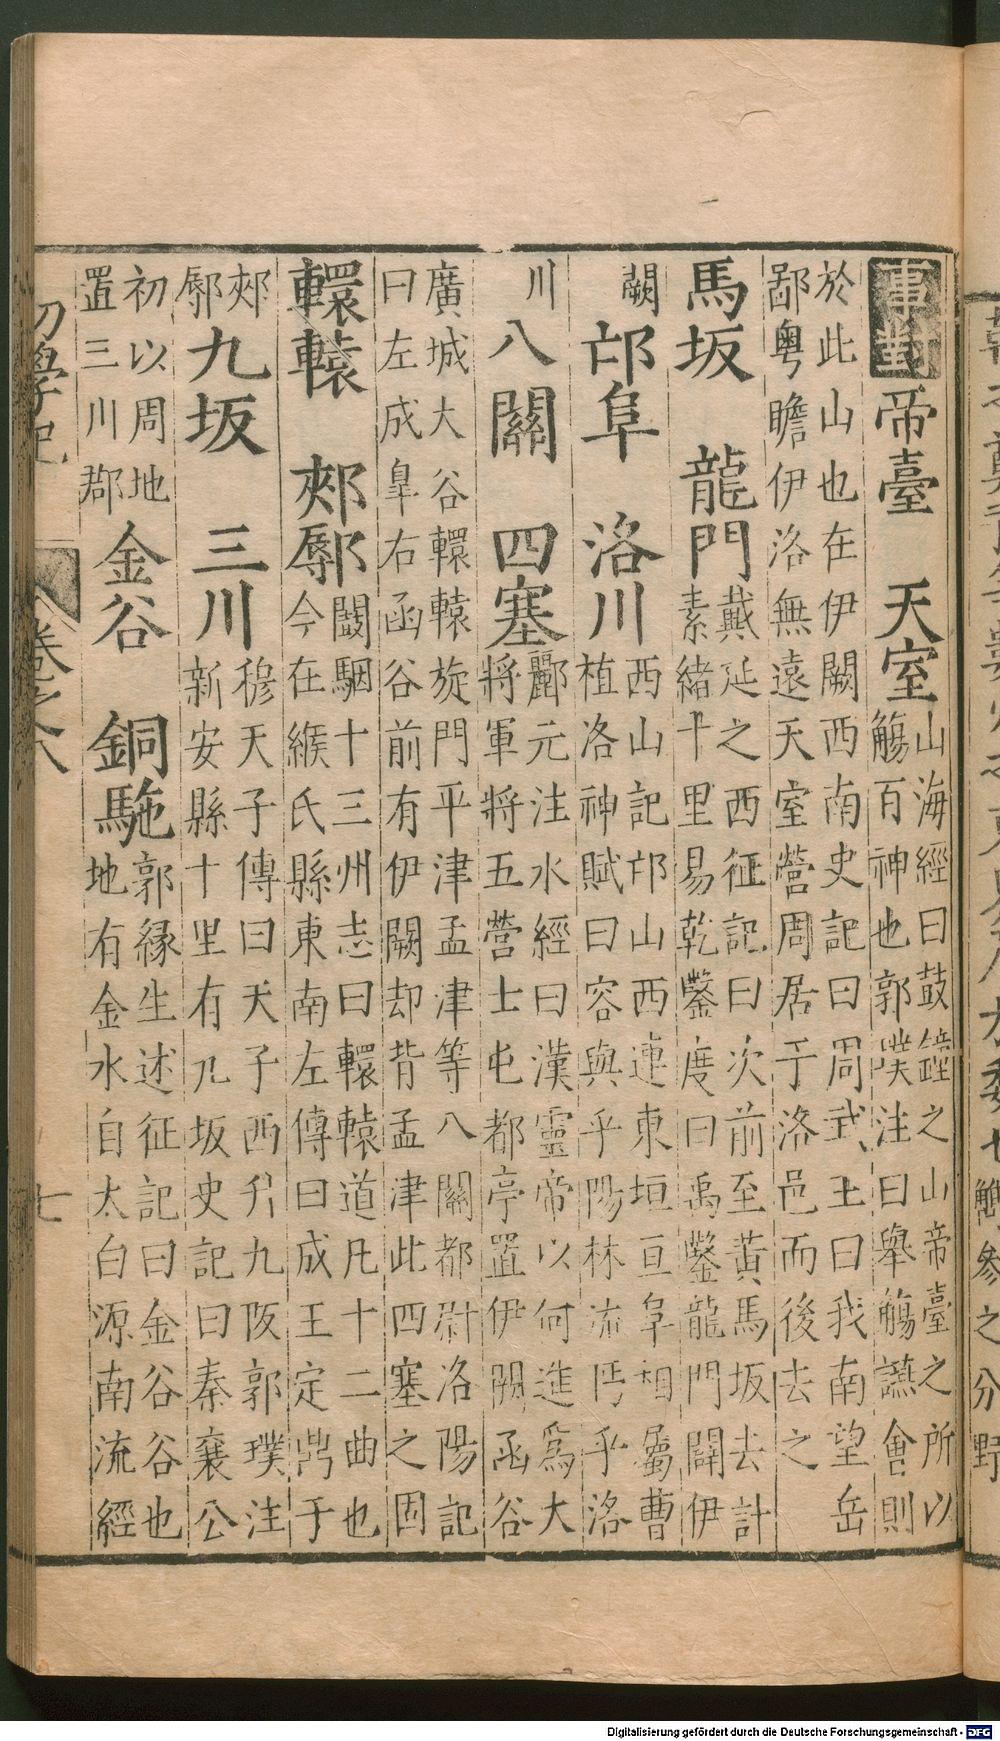 事對 帝臺 天室
山海經曰鼓鐘之山帝臺之所以
觴百神也郭璞注曰舉觴讌會則
於此山也在伊闕西南史記曰周武王曰我南望岳
鄙粵瞻伊洛無遠天室營周居于洛邑而後去之
馬坂 龍門
戴延之西征記曰次前至黃馬坂去計
素緒十里易乾鑿度曰禹鑿龍門闢伊
闕
邙阜 洛川
西山記邙山西連東垣亘阜相屬曹
植洛神賦曰容與乎陽林流眄乎洛
川
八關 四塞
酈元注水經曰漢靈帝以何進爲大
將軍將五營士屯都亭置伊闕函谷
廣城大谷轘轅旋門平津孟津等八關都尉洛陽記
曰左成皐右函谷前有伊闕却背孟津此四塞之固
轘轅 郟鄏
闞駰十三州志曰轘轅道凡十二曲也
今在緱氏縣東南左傳曰成王定鼎于
郟
鄏
九坂 三川
穆天子傳曰天子西升九阪郭璞注
新安縣十里有九坂史記曰秦襄公
初以周地
置三川郡
金谷 銅駞
郭緣生述征記曰金谷谷也
地有金水自太白源南流經
初學記 卷之八 七
Digitalisierung gefördert durch die Deutsche Forschungsgemeinschaft - DFG